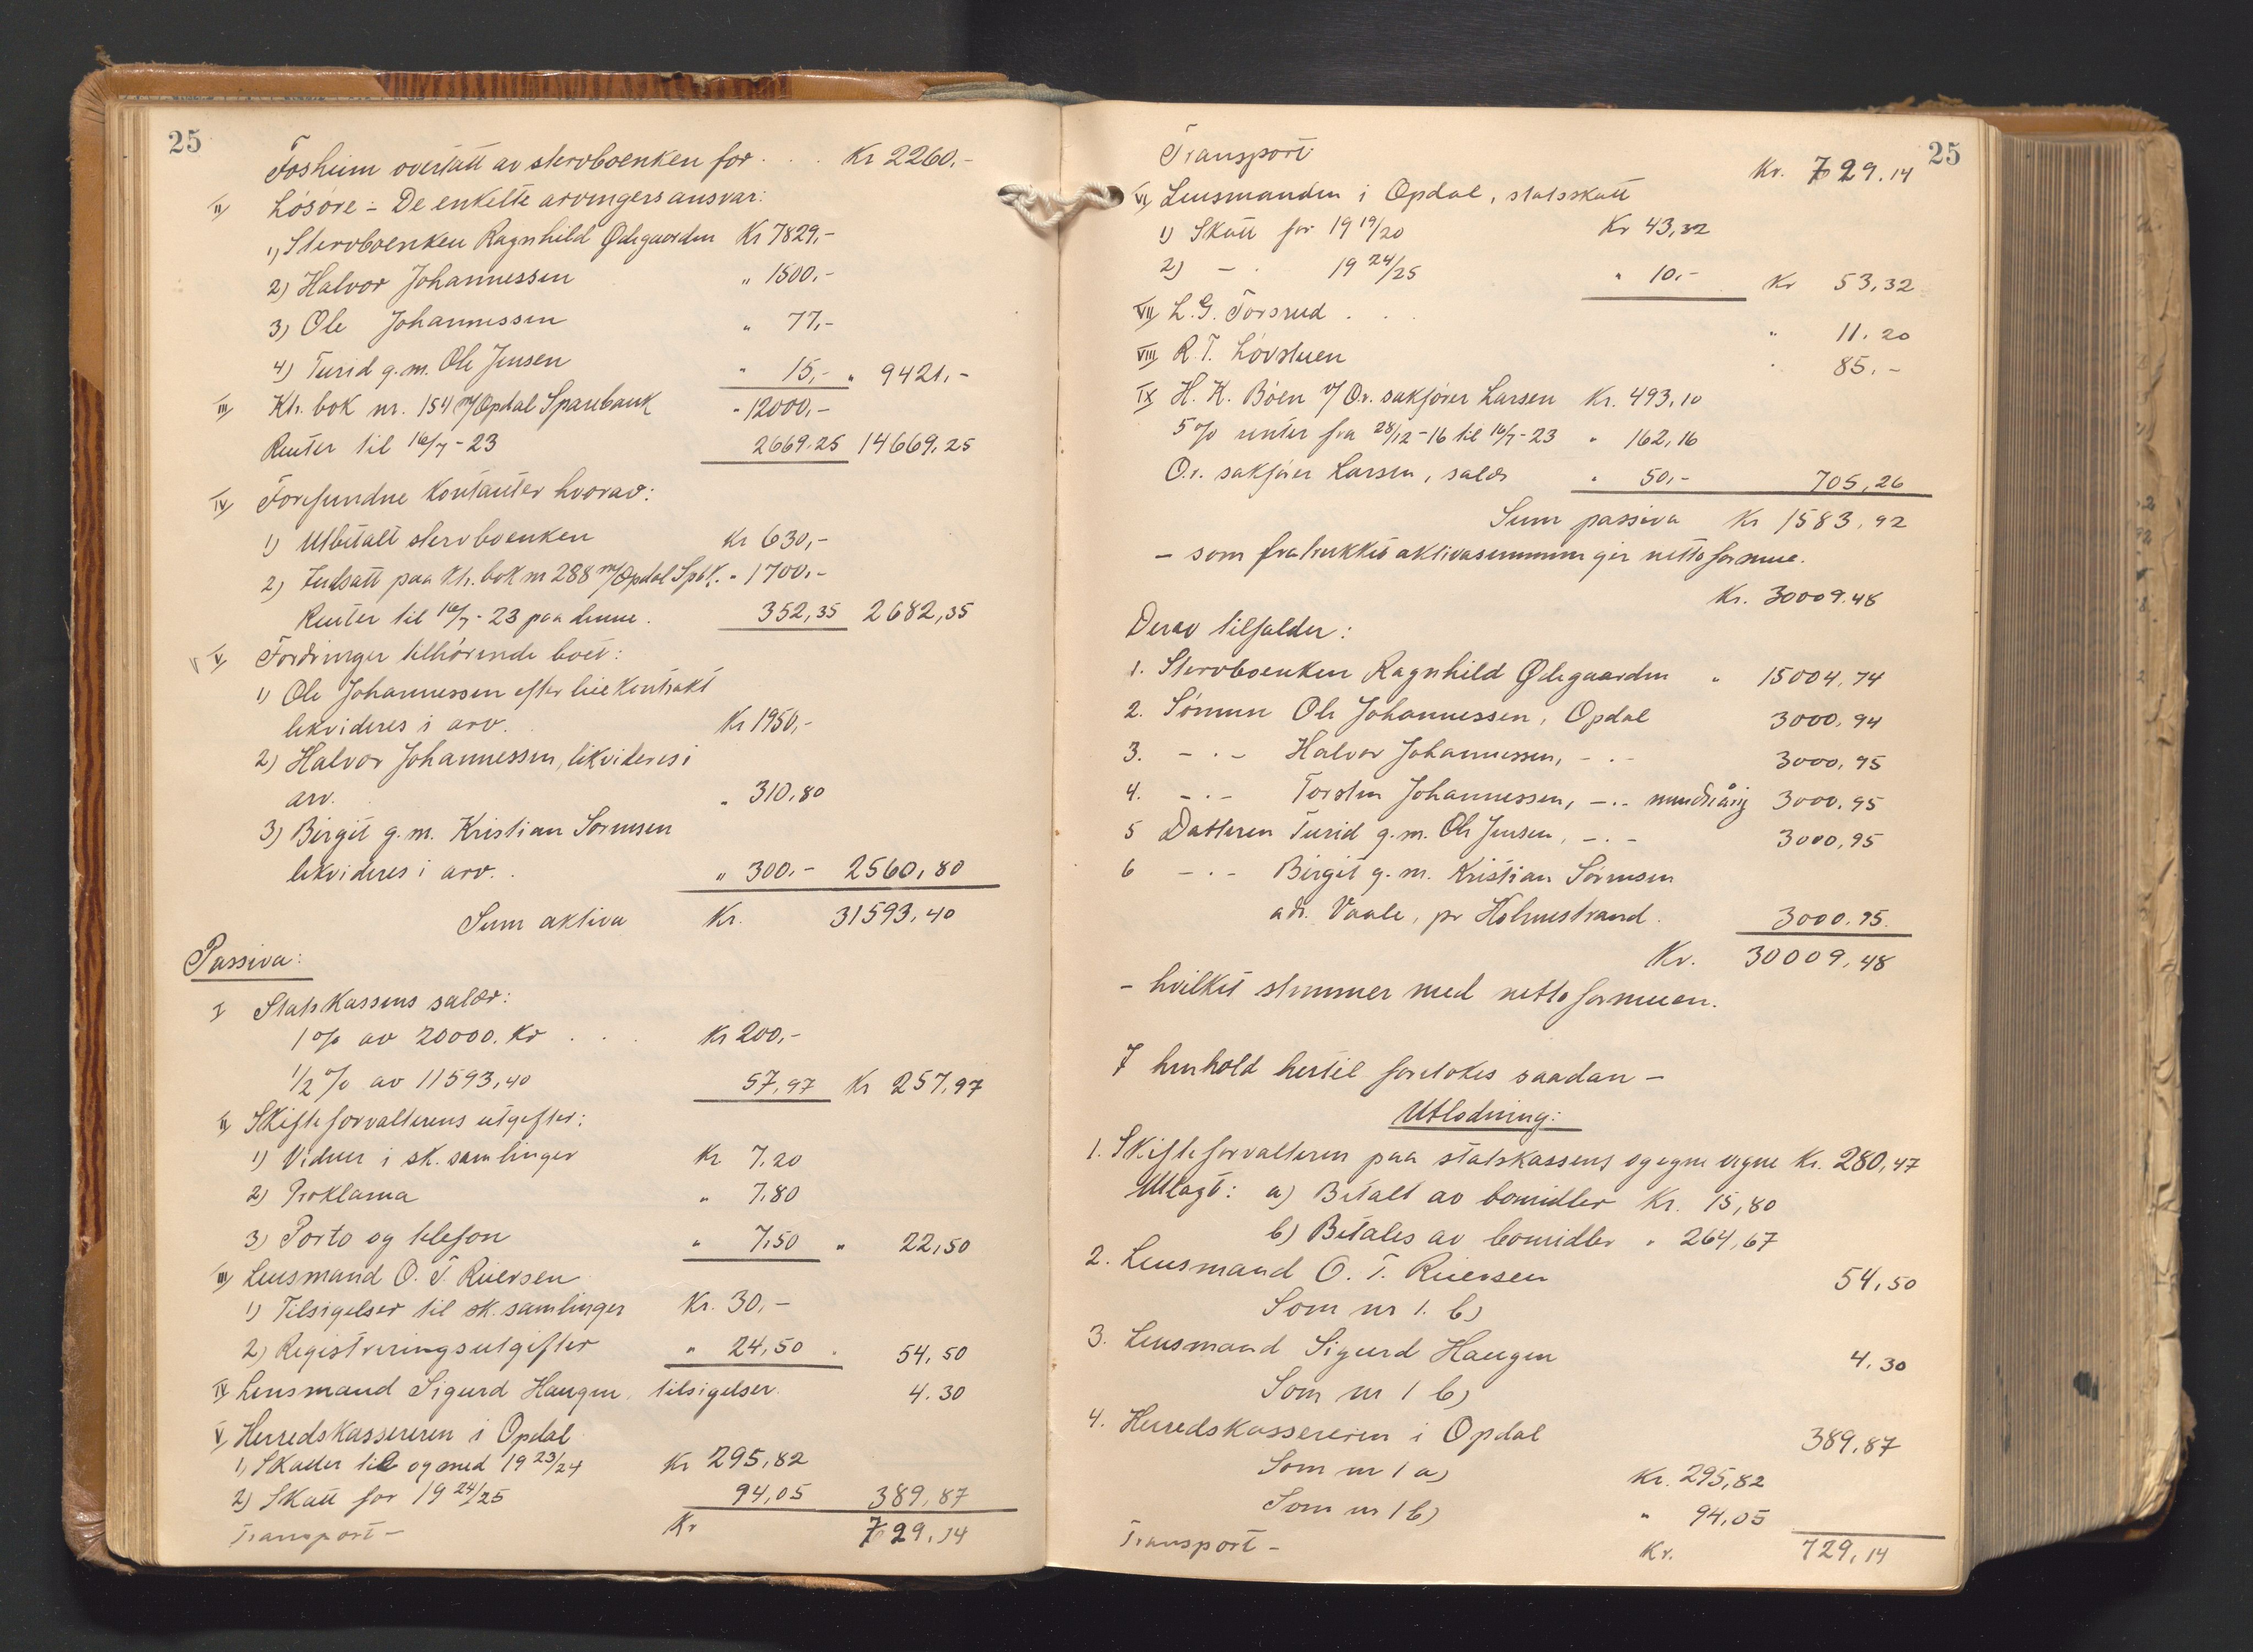 25
Fosheim overtatt av stervboenken for . . . Kr 2260,-
II, Løsøre: - De enkelte arvingers ansvar:
1, Stervboenken Ragnhild Ødegaarden Kr 7829,-
2) Halvor Johannessen " 1500,-
3) Ole Johannessen " 77,-
4) Turid g.m. Ole Jensen " 15,- " 9421,-
III, Ktr. bok nr. 154 m/Opdal Sparebank " 12000,-
Renter til 16/7-23 2669.25 14669,25
IV, Forefundne Kontanter hvorav:
1) Utbetalt stervboenken Kr 630,-
2) Indsatt paa Ktr. bok nr 288 m/Opdal Spbk. " 1700,-
Renter til 16/7-23 paa denne. 352,35 2682,35
V, Fordringer tilhørende boet:
1) Ole Johannessen efter leiekontrakt
likvideres i arv. Kr 1950,-
2) Halvor Johannessen, likvideres i
arv. " 310,80
3) Birgit g.m. Kristian Sørensen
likvideres i arv. . " 300,- 2560,80
Sum aktiva Kr. 31593,40
Passiva:
I Statskassens salær:
1% av 20000. Kr . . . Kr 200,-
1/2% av 11593,40 57,97 Kr 257,97
II, Skifteforvalterens utgifter:
1) Vidner i sk. samlinger Kr 7,20
2) Proklama " 7,80
3) Porto og telefon " 7,50 " 22,50
III, Lensmand O. T. Ruersen
1) Tilsigelser til sk. samlinger Kr. 30,-
2) Registreringsutgifter " 24,50 . 54,50
IV Lensmand Sigurd Haugen, tilsigelser. 4.30
V, Herredskassereren i Opdal
1, Skatter til og med 19 23/24 Kr 295,82
2) Skatt for 19 24/25 94,05 389,87
Transport - Kr 729,14
25
Transport: Kr. 729.14
VI, Lensmanden i Opdal, statsskatt
1) Skatt for 19 19/20 Kr 43,32
2) - . 19 24/25 " 10,- Kr 53,32
VII, L. G. Torsrud . . . " 11.20
VIII, R. T. Løvstuen . 85.-
IX, H. K. Bøen v/ O.r. sakfører Larsen Kr. 493,10
5% renter fra 28/12-16 til 16/7-23 " 162,16
O.r. sakfører Larsen, salær " 50,- 705,26
Sum passiva Kr 1583,92
- som fratrukket aktivasummen gir nettoformue.
Kr. 30009.48
Derav tilfalder:
1. Stervboenken Ragnhild Ødegaarden " 15004,74
2. Sønnen Ole Johannessen, Opdal 3000,94
3. - . - Halvor Johannessen, - . - 3000,95
4. - . - Torsten Johannessen, - . - mindreårig 3000,95
5 Datteren Turid g.m. Ole Jensen, - . - 3000,95
6 - . - Birgit g. m. Kristian Sørensen
adr. Vaale, pr Holmestrand. 3000,95.
Kr. 30009,48
- hvilket stemmer med nettoformuen.
I henhold hertil foretokes saadan -
Utlodning:
1. Skifteforvalteren paa statskassens og egne vegne Kr. 280,47
Utlagt: a) Betalt av bomidler Kr. 15,80
b) Betales av bomidler " 264,67
2. Lensmand O. T. Ruersen 54,50
Som nr 1. b)
3. Lensmand Sigurd Haugen 4.30
Som nr 1 b)
4. Herredskassereren i Opdal 389,87
Som nr 1 a) Kr. 295,82
Som nr 1 b) " 94,05
Transport - Kr. 729,14